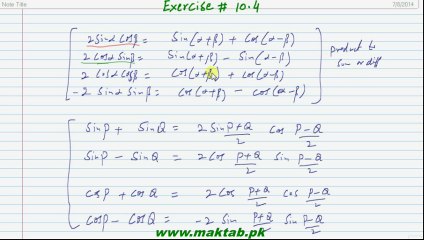 Note Title
7/8/2014
Exercise # 10.4
2 Sinα Cosβ = Sin(α+β) + Cos(α-β)
2 Cosα Sinβ = Sin(α+β) - Sin(α-β)
2 Cosα Cosβ = Cos(α+β) + Cos(α-β)
-2 Sinα Sinβ = Cos(α+β) - Cos(α-β)
product to
sum or diff
SinP + SinQ = 2 Sin P+Q/2 Cos P-Q/2
SinP - SinQ = 2 Cos P+Q/2 Sin P-Q/2
CosP + CosQ = 2 Cos P+Q/2 Cos P-Q/2
CosP - CosQ = -2 Sin P+Q/2 Sin P-Q/2
www.maktab.pk